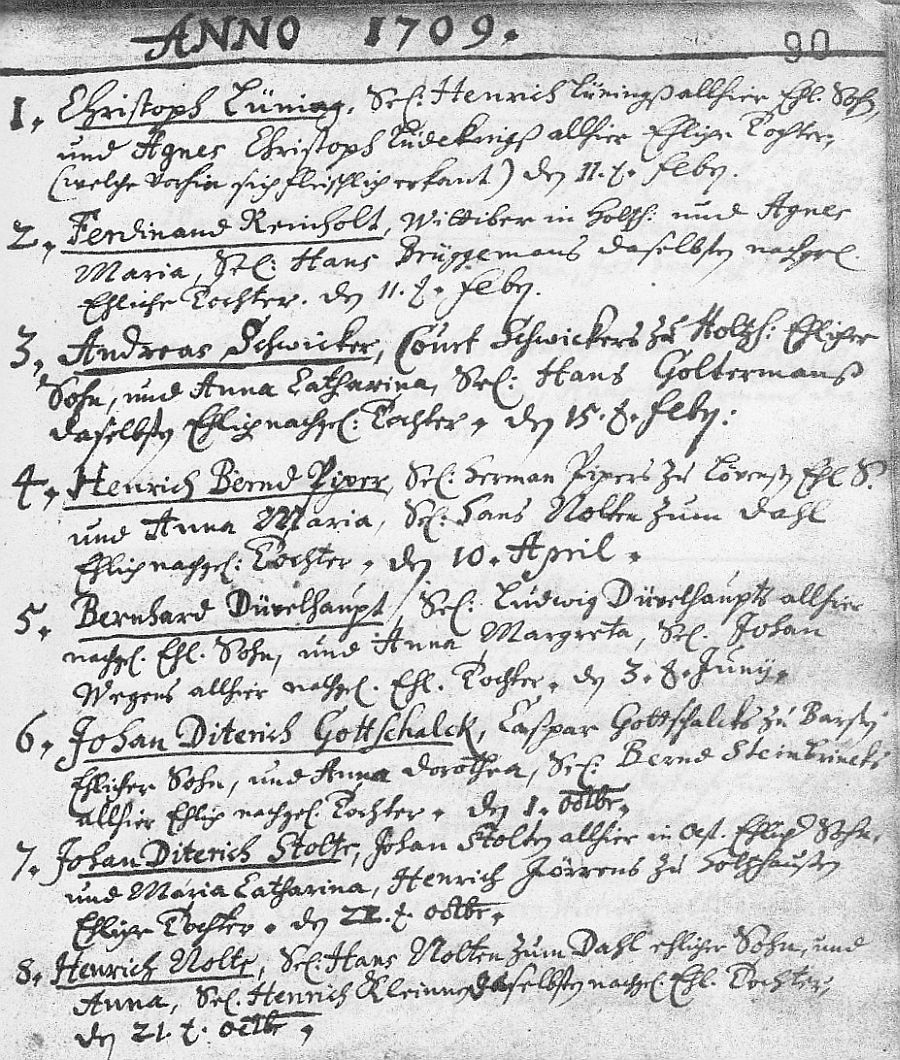 ANNO 1709.
90
1. Christoph Lüning, Sel: Henrich Lünings allhier Ehl. Sohn,
und Agnes Christoph allhier Ehliche Tochter,
(welche vorhin sich fleischlich erkant) den 11. t. Febr.
2. Ferdinand Reinholt, Wittiber in Holtzh: und Agnes
Maria, Sel: Hans Brüggemans daselbsten nachgel.
Ehliche Tochter. den 11. t. Febr.
3. Andreas Schwicker, Court Schwickers zu Holtzh: Ehlicher
Sohn, und Anna Catharina, Sel: Hans Goltermanß
daselbsten Ehlich nachgel: Tochter, den 15. t. Febr:
4. Henrich Bernd Piper, Sel: Herman Pipers zu Ehl S.
und Anna Maria, Sel: Hans Nolten zum Dahl
Ehlich nachgel: Tochter, den 10. April.
5. Bernhard Düvelhaupt, Sel: Ludwig Düvelhaupts allhier
nachgel. Ehl. Sohn, und Anna Margreta, Sel. Johan
Wegens allhier nachgel. Ehl. Tochter, den 3. t. Juny.
6. Johan Diterich Gottschalck, Caspar Gottschalcks zu
Ehlicher Sohn, und Anna Dorothea, Sel: Bernd Steinbrincks
allhier Ehlich nachgel. Tochter. den 1. octbr.
7. Johan Diterich Stolte, Johan Stolten allhier in Ehlich Sohn,
und Maria Catharina, Henrich zu Holtzhausen
Ehliche Tochter. den 22. t. octbr.
8. Henrich Nolte, Sel: Hans Nolten zum Dahl ehlicher Sohn, und
Anna, Sel. Henrich daselbsten nachgel. Ehl. Tochter,
den 21. t. octbr.